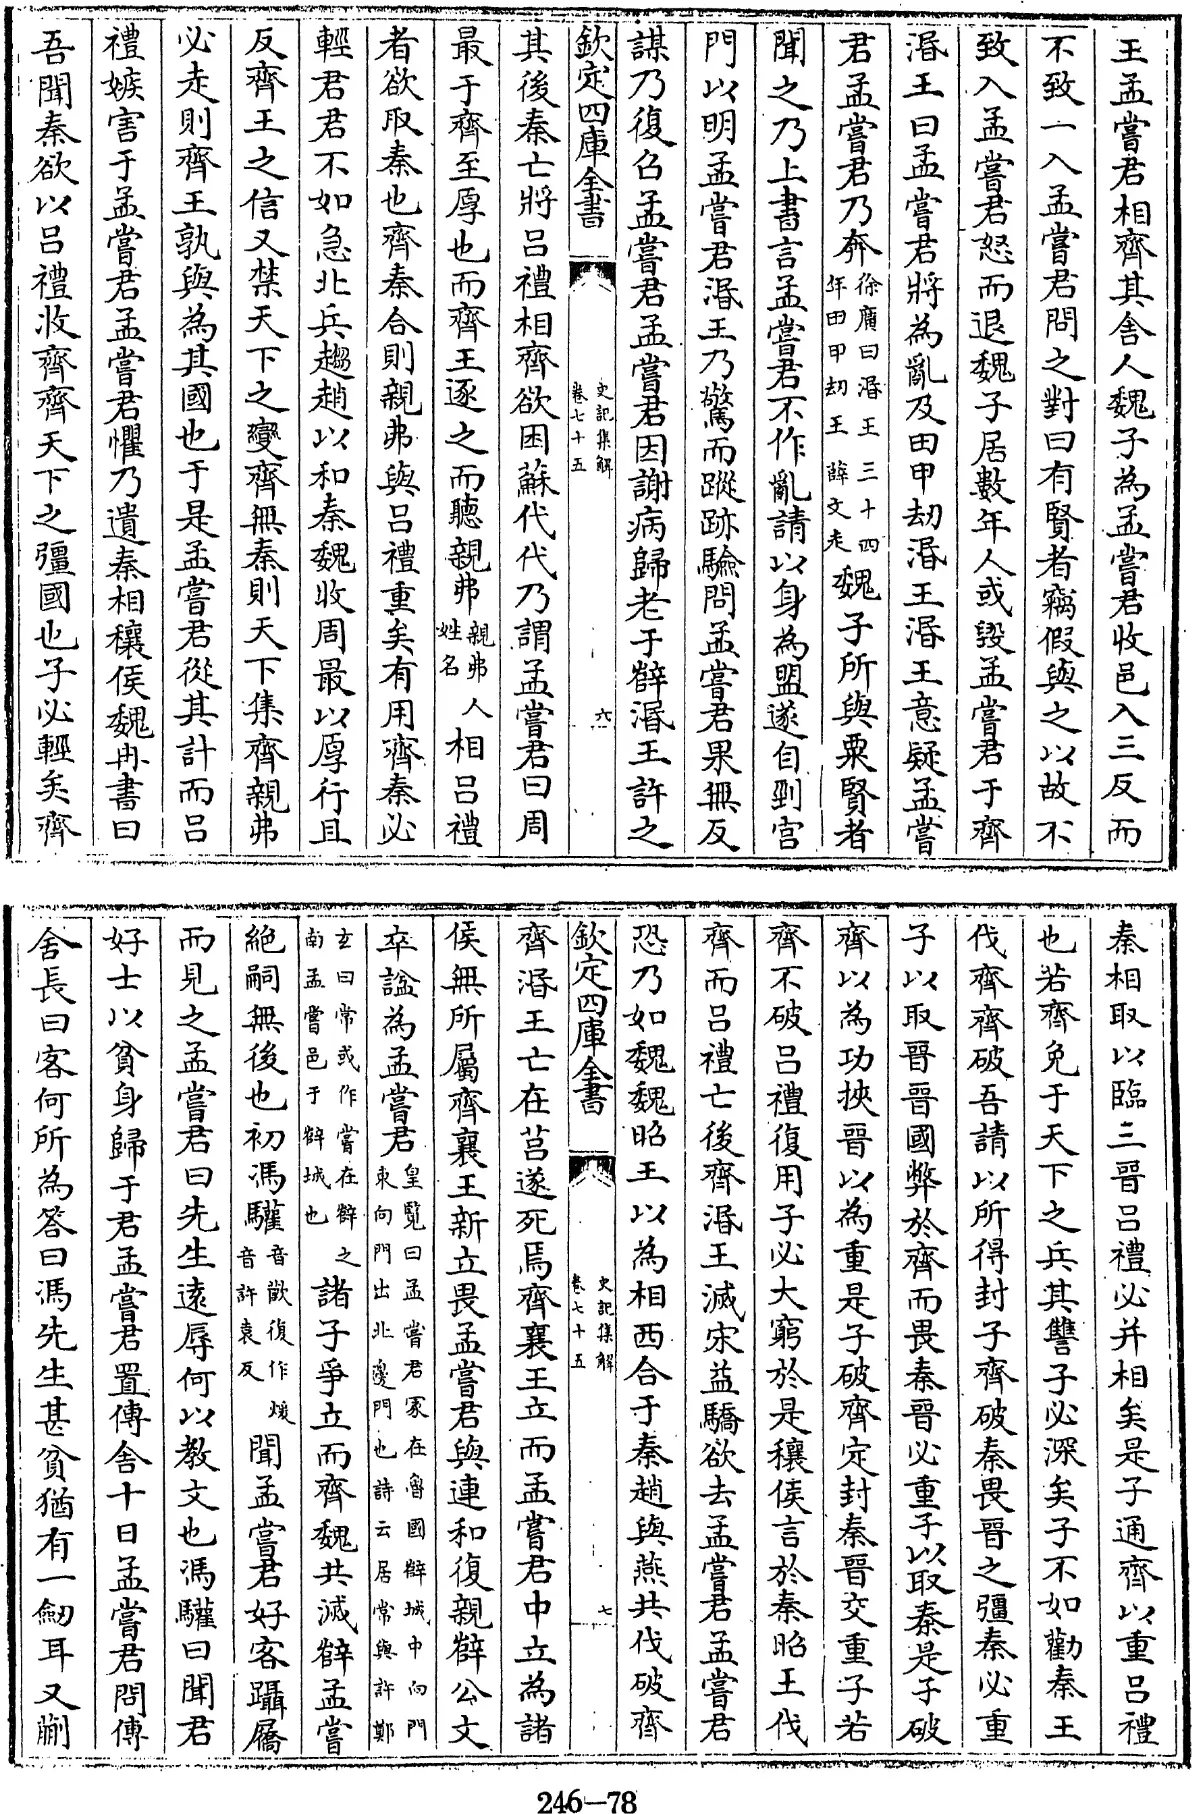 王孟嘗君相齊其舍人魏子為孟嘗君收邑入三反而
不致一入孟嘗君問之對曰有賢者竊假與之以故不
致入孟嘗君怒而退魏子居數年人或毀孟嘗君于齊
湣王曰孟嘗君將為亂及田甲刼湣王湣王意疑孟嘗
君孟嘗君乃奔徐廣曰湣王三十四年田甲刼王薛文走魏子所與粟賢者
聞之乃上書言孟嘗君不作亂請以身為盟遂自剄宮
門以明孟嘗君湣王乃驚而蹤跡驗問孟嘗君果無反
謀乃復召孟嘗君孟嘗君因謝病歸老于薛湣王許之
欽定四庫全書 史記集解卷七十五 六
其後秦亡將呂禮相齊欲困蘇代代乃謂孟嘗君曰周
最于齊至厚也而齊王逐之而聽親弗親弗人姓名相呂禮
者欲取秦也齊秦合則親弗與呂禮重矣有用齊秦必
輕君君不如急北兵趨趙以和秦魏收周最以厚行且
反齊王之信又禁天下之變齊無秦則天下集齊親弗
必走則齊王孰與為其國也于是孟嘗君從其計而呂
禮嫉害于孟嘗君孟嘗君懼乃遺秦相穰侯魏冉書曰
吾聞秦欲以呂禮收齊齊天下之彊國也子必輕矣齊
秦相取以臨三晉呂禮必并相矣是子通齊以重呂禮
也若齊免于天下之兵其讐子必深矣子不如勸秦王
伐齊齊破吾請以所得封子齊破秦畏晉之彊秦必重
子以取晉晉國弊於齊而畏秦晉必重子以取秦是子破
齊以為功挾晉以為重是子破齊定封秦晉交重子若
齊不破呂禮復用子必大窮於是穰侯言於秦昭王伐
齊而呂禮亡後齊湣王滅宋益驕欲去孟嘗君孟嘗君
恐乃如魏魏昭王以為相西合于秦趙與燕共伐破齊
欽定四庫全書 史記集解卷七十五 七
齊湣王亡在莒遂死焉齊襄王立而孟嘗君中立為諸
侯無所屬齊襄王新立畏孟嘗君與連和復親薛公文
卒諡為孟嘗君皇覽曰孟嘗君冢在魯國薛城中向門東向門出北邊門也詩云居常與許鄭
玄曰常或作嘗在薛之南孟嘗邑于薛城也諸子爭立而齊魏共滅薛孟嘗
絶嗣無後也初馮驩音歡復作煖音許袁反聞孟嘗君好客躡屩
而見之孟嘗君曰先生逺辱何以教文也馮驩曰聞君
好士以貧身歸于君孟嘗君置傳舍十日孟嘗君問傳
舍長曰客何所為答曰馮先生甚貧猶有一劒耳又蒯
246—78